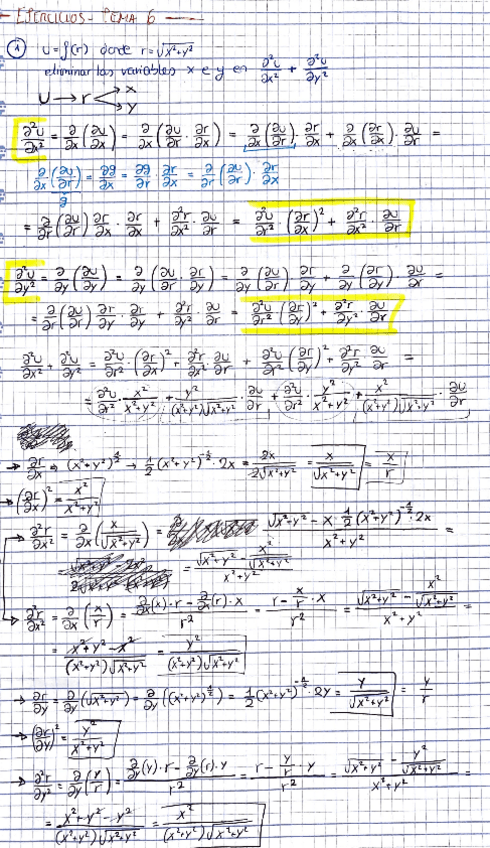 EJERCICIOS - TEMA 6
① U = f(r) donde r = √(x²+y²)
eliminar las variables x e y en ∂²u/∂x² + ∂²u/∂y²
U → r < x
y
∂²u/∂x² = ∂/∂x (∂u/∂x) = ∂/∂x (∂u/∂r · ∂r/∂x) = ∂/∂x (∂u/∂r) · ∂r/∂x + ∂/∂x (∂r/∂x) · ∂u/∂r =
∂/∂x (∂u/∂r) = ∂g/∂x = ∂g/∂r · ∂r/∂x = ∂/∂r (∂u/∂r) · ∂r/∂x
g
= ∂/∂r (∂u/∂r) ∂r/∂x · ∂r/∂x + ∂²r/∂x² · ∂u/∂r = ∂²u/∂r² · (∂r/∂x)² + ∂²r/∂x² · ∂u/∂r
∂²u/∂y² = ∂/∂y (∂u/∂y) = ∂/∂y (∂u/∂r · ∂r/∂y) = ∂/∂y (∂u/∂r) ∂r/∂y + ∂/∂y (∂r/∂y) · ∂u/∂r =
= ∂/∂r (∂u/∂r) ∂r/∂y · ∂r/∂y + ∂²r/∂y² · ∂u/∂r = ∂²u/∂r² (∂r/∂y)² + ∂²r/∂y² · ∂u/∂r
∂²u/∂x² + ∂²u/∂y² = ∂²u/∂r² · (∂r/∂x)² + ∂²r/∂x² ∂u/∂r + ∂²u/∂r² (∂r/∂y)² + ∂²r/∂y² ∂u/∂r =
= ∂²u/∂r² · x²/(x²+y²) + y²/((x²+y²)√(x²+y²)) · ∂u/∂r + ∂²u/∂r² · y²/(x²+y²) + x²/((x²+y²)√(x²+y²)) · ∂u/∂r
→ ∂r/∂x → (x²+y²)^(1/2) → 1/2 (x²+y²)^(-1/2) · 2x = 2x/(2√(x²+y²)) = x/√(x²+y²) = x/r
→ (∂r/∂x)² = x²/(x²+y²)
→ ∂²r/∂x² = ∂/∂x (x/√(x²+y²)) = (√(x²+y²) - x · 1/2 (x²+y²)^(-1/2) · 2x)/(x²+y²) =
= (√(x²+y²) - x²/√(x²+y²))/(x²+y²)
→ ∂²r/∂x² = ∂/∂x (x/r) = (∂/∂x(x) · r - ∂/∂x(r) · x)/r² = (r - x/r · x)/r² = (√(x²+y²) - x²/√(x²+y²))/(x²+y²) =
= (x²+y²-x²)/((x²+y²)√(x²+y²)) = y²/((x²+y²)√(x²+y²))
→ ∂r/∂y = ∂/∂y (√(x²+y²)) = ∂/∂y ((x²+y²)^(1/2)) = 1/2 (x²+y²)^(-1/2) · 2y = y/√(x²+y²) = y/r
→ (∂r/∂y)² = y²/(x²+y²)
→ ∂²r/∂y² = ∂/∂y (y/r) = (∂/∂y(y) · r - ∂/∂y(r) · y)/r² = (r - y/r · y)/r² = (√(x²+y²) - y²/√(x²+y²))/(x²+y²) =
= (x²+y²-y²)/((x²+y²)√(x²+y²)) = x²/((x²+y²)√(x²+y²))